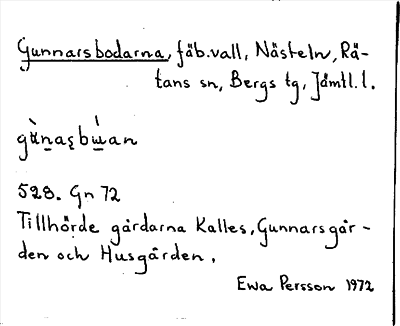 Gunnarsbodarna, fäb.vall, Nästeln, Rä-
tans sn, Bergs tg, Jämtl. l.
528. Gn 72
Tillhörde gårdarna Kalles, Gunnarsgår-
den och Husgården.
Ewa Persson 1972